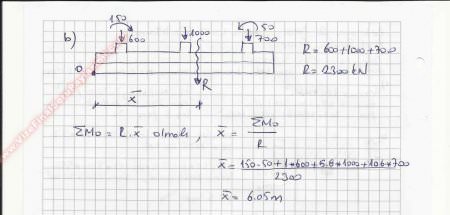 b)
150 50
600 1000 700
R = 600+1000+700
R = 2300 kN
O
R
x̄
ΣMo = R.x̄ olmalı, x̄ = ΣMo / R
x̄ = 150-50+1*600+5.6*1000+10.6*700 / 2300
x̄ = 6.05m